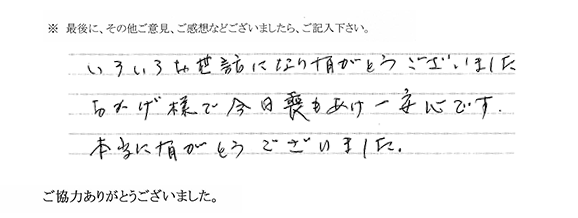 ※ 最後に、その他ご意見、ご感想などございましたら、ご記入下さい。
いろいろお世話になり有がとうございました
おかげ様で今日喪もあけ一安心です.
本当に有がとうございました.
ご協力ありがとうございました。